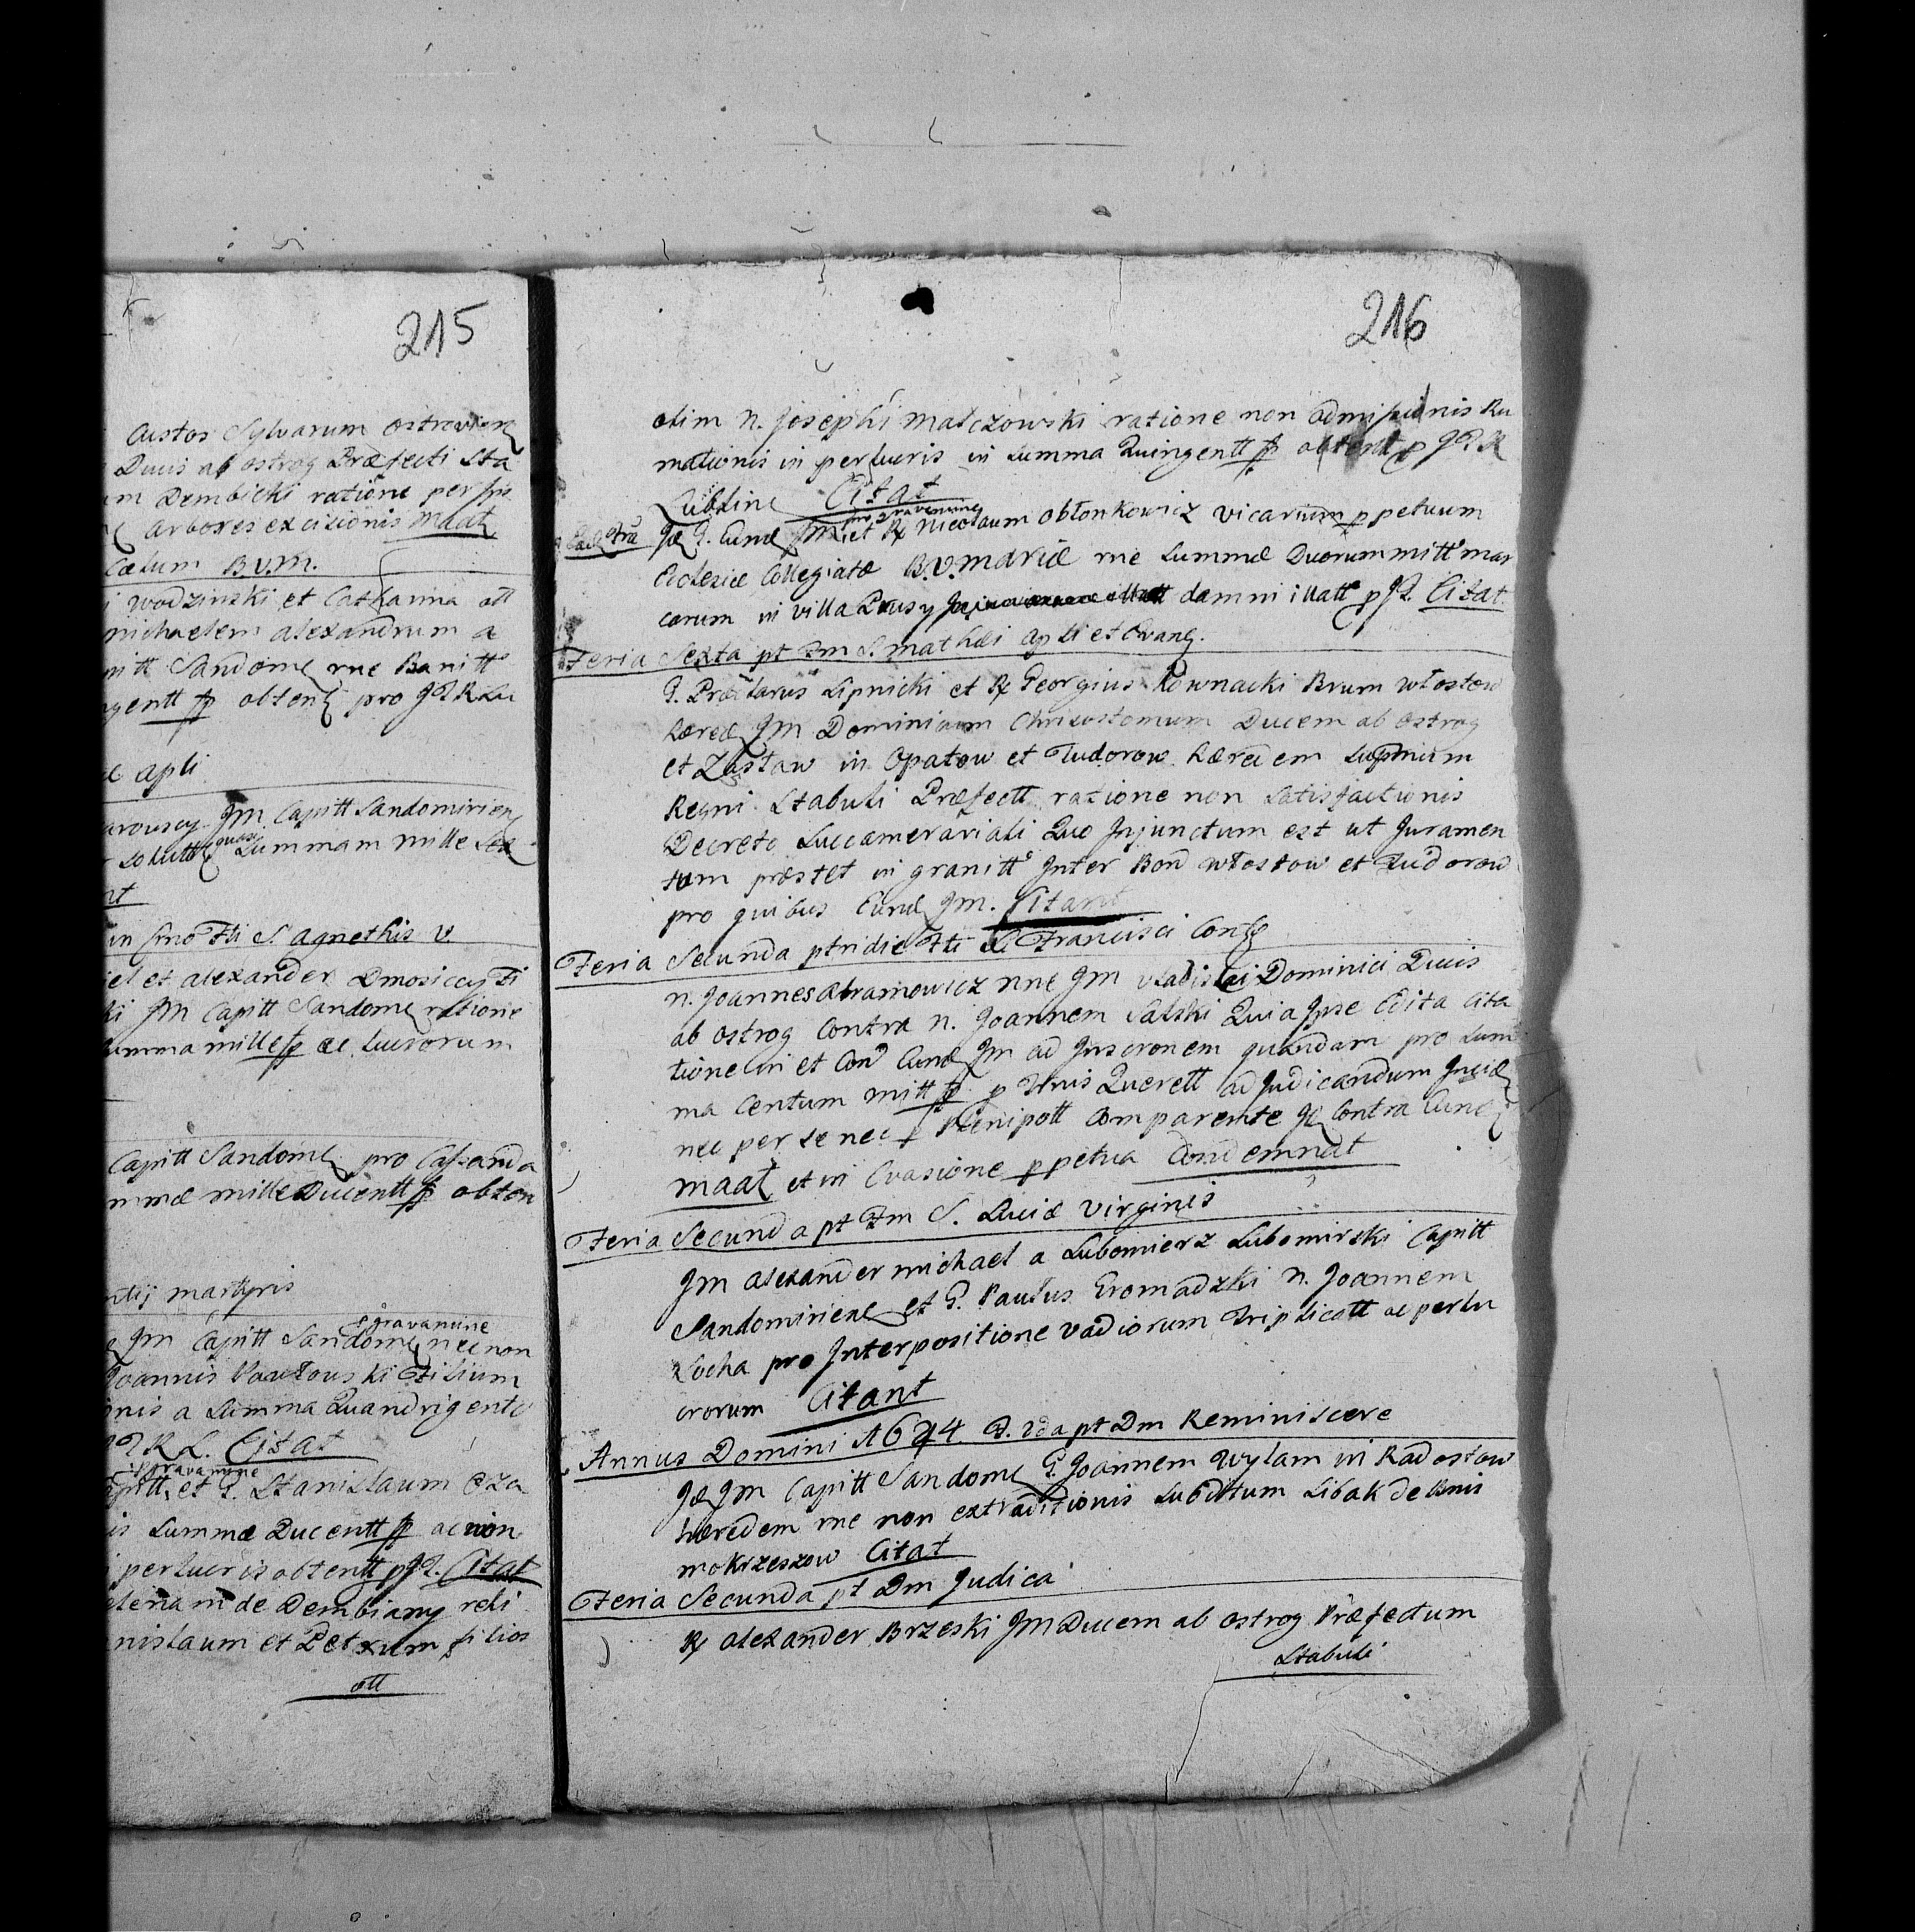 215
Custos Sylvarum ostrovien
Ducis ab ostrog Præfecti Sta
m Dembicki ratione
arbores excisionis maat
Cælum B.V.M.
i Wodzinski et Catharina ott
michaelem alexandrum a
itt Sandome rne Banitt
gentt fl obten pro JPRLu
apli
Jm Capitt Sandomirien
Solutt quasi Summam mille sex
nt
in Crno Fti S. agnethis V.
iel et alexander
ki Jm Capitt Sandome ratione
umma mille fl ac luerorum
Capitt Sandome pro
mæ mille Ducentt fl obten
ntij martyris
pgravamine
Jm Capitt Sandome necnon
Joannis Pawłowski Filium
onis a Summa Quandrigento
JPRL. Citat
pgravamine
apitt et G. Stanislaum Cza
is Summæ Ducentt fl ac non
i perlucris obtentt pJP. Citat
elenam de Dembiany reli
nislaum et Petrum filios
ott
216
olim N. Josephi Malczowski ratione non admissionis Ru
mationis in perlucris in Summa Quingentt fl obtentt p JPR
Lubline Citat
pro gravamine
Jæ G. Eund Jm et R Nicolaum obłonkowicz vicarium ppetuum
Ecclesiæ Collegiatæ B.V. Mariæ rne Summæ Duorum mitt mar
carum in villa Prusy damni illatt pJP. Citat
Feria Sexta pt Fm S. mathæi apli et Evang.
G. Præclarus Lipnicki et R Georgius Kownacki Brum włostow
hæred Jm Dominicum Chrisostomum Ducem ab Ostrog
et Zasław in Opatow et Tudorow hæredem Supmum
Regni Stabuli Præfectt ratione non Satisfactionis
Decreto Succamerariali Quo Injunctum est ut Juramen
tum præstet in granitt Inter Bon włostow et Tudorow
pro quibus Eund Jm. Citant
Feria Secunda ptridie Fti S. Francisci Conf
N. Joannes Abramowicz nne Jm vladislai Dominici Ducis
ab Ostrog Contra N. Joannem Salski Quia Ipse Edita Cita
tione in et Con Eund Jm ad Inscronem quandam pro Sum
ma Centum mitt fl p Querett adjudicandum
nec per se nec p Plenipott Comparente Contra Eund
maat et in Evasione ppetua Condemnat
Feria Secunda pt Fm S. Luciæ Virginis
Jm Alexander michael a Lubomierz Lubomirski Capitt
Sandomirien et G. Paulus Gromadzki N. Joannem
Socha pro Interpositione vadiorum Triplicatt ac perlu
crorum Citant
Annus Domini 1674 F. 2da pt Dm Reminiscere
Jæ Jm Capitt Sandome G. Joannem Wylam in Radostow
hæredem rne non extraditionis Subditum Libak de Bnis
mokrzeszow Citat
Feria Secunda pt Dm Judica
R Alexander Brzeski Jm Ducem ab ostrog Præfectum
Stabuli